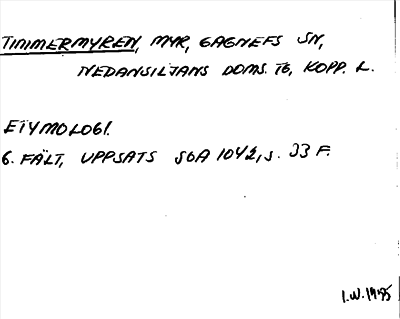 TIMMERMYREN, MYR, GAGNEFS SN,
NEDANSILJANS DOMS. TG, KOPP. L.
ETYMOLOGI.
G. FÄLT, UPPSATS SOA 1042, s. 33 F.
I.W. 1985